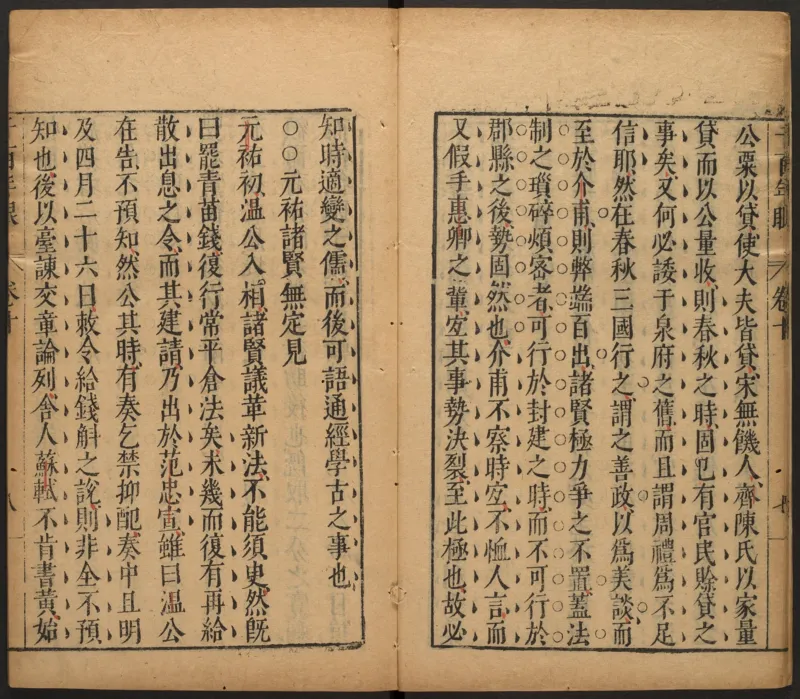 公粟以貸使大夫皆貸宋無饑人齊陳氏以家量
貸而以公量收則春秋之時固已有官民賒貸之
事矣又何必諉于泉府之舊而且謂周禮爲不足
信耶然在春秋三國行之謂之善政以爲美談而
至於介甫則弊端百出諸賢極力爭之不置蓋法
制之瑣碎煩宻者可行於封建之時而不可行於
郡縣之後勢固然也介甫不察時宐不恤人言而
又假手惠卿之輩宐其事勢決裂至此極也故必
知時適變之儒而後可語通經學古之事也
〇〇元祐諸賢無定見
元祐初溫公入相諸賢議革新法不能須臾然旣
曰罷青苗錢復行常平倉法矣未幾而復有再給
散出息之令而其建請乃出於范忠宣雖曰溫公
在告不預知然公其時有奏乞禁抑配奏中且明
及四月二十六日敕令給錢斛之說則非全不預
知也後以臺諫交章論列舍人蘇軾不肯書黃始
千百年眼
卷十
八